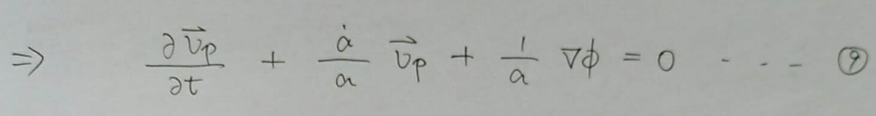 ⇒ ∂v⃗ₚ/∂t + ȧ/a v⃗ₚ + 1/a ∇ϕ = 0 - - - ⑨